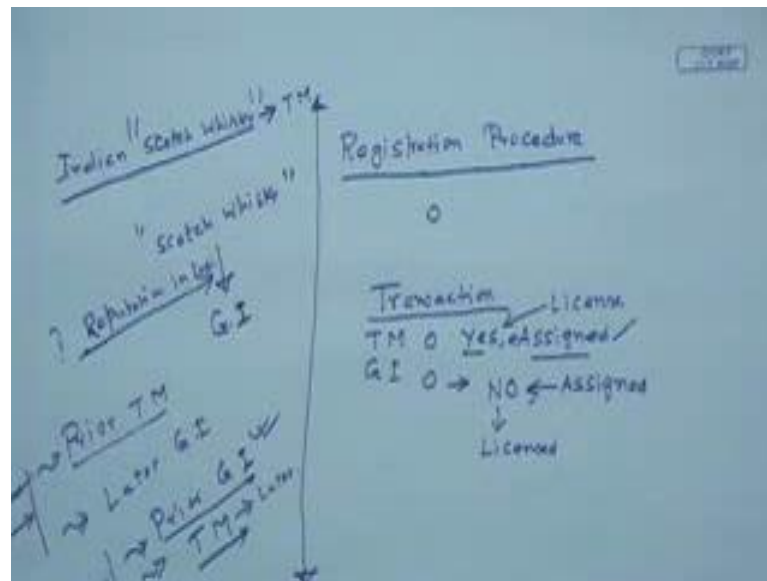 Indian "Scotch whisky" → TM
"Scotch whisky"
? Reputation in
G.I
→ Prior TM
→ Later G.I
→ Prior G.I
→ TM → Later
Registration Procedure
O
Transaction
License
TM O Yes, Assigned
GI O → NO ← Assigned
Licensed